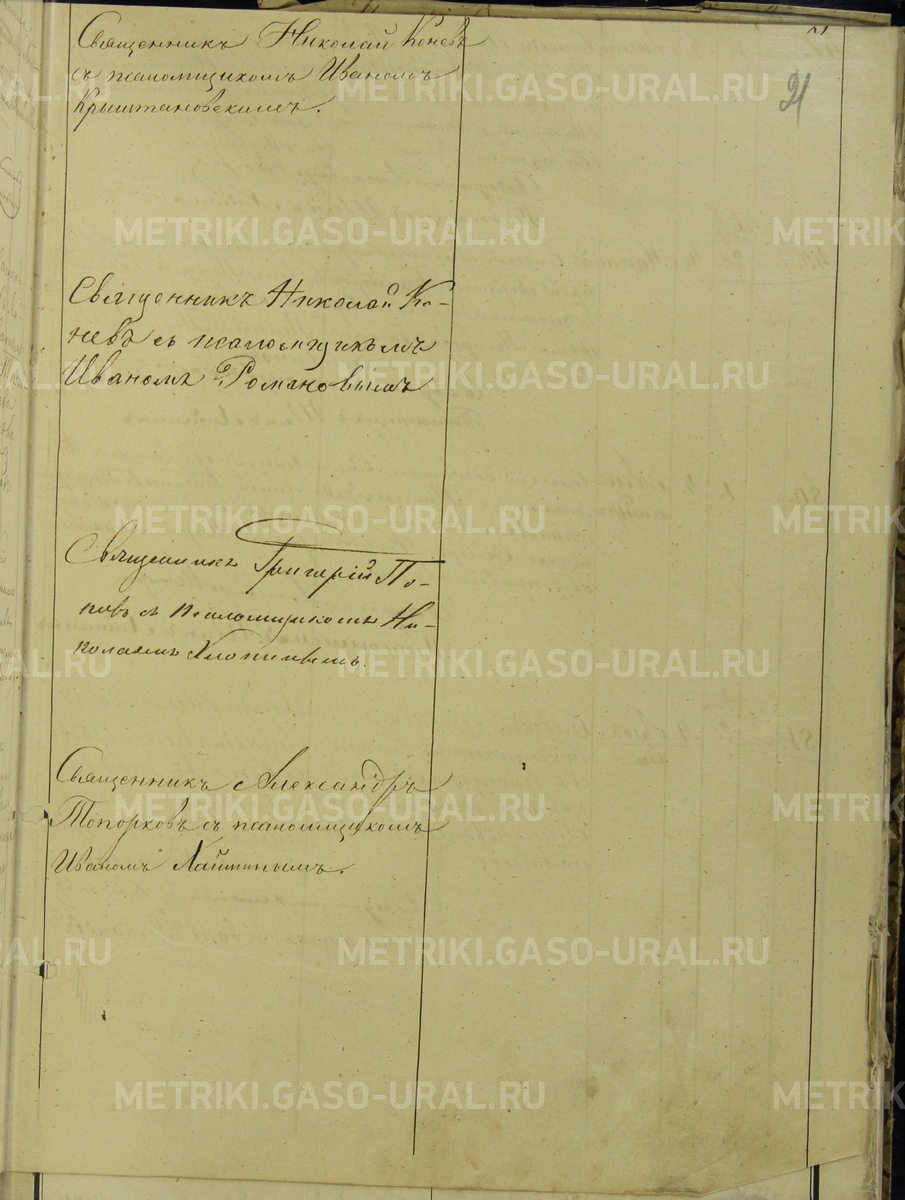 21
Священникъ Николай Коневъ
съ псаломщикомъ Иваномъ
Криштановскимъ.
Священникъ Николай Ко-
невъ съ псаломщикомъ
Иваномъ Романовымъ
Священникъ Григорій По-
повъ съ псаломщикомъ Ни-
колаемъ
Священникъ Александръ
Топорковъ съ псаломщикомъ
Иваномъ
METRIKI.GASO-URAL.RU